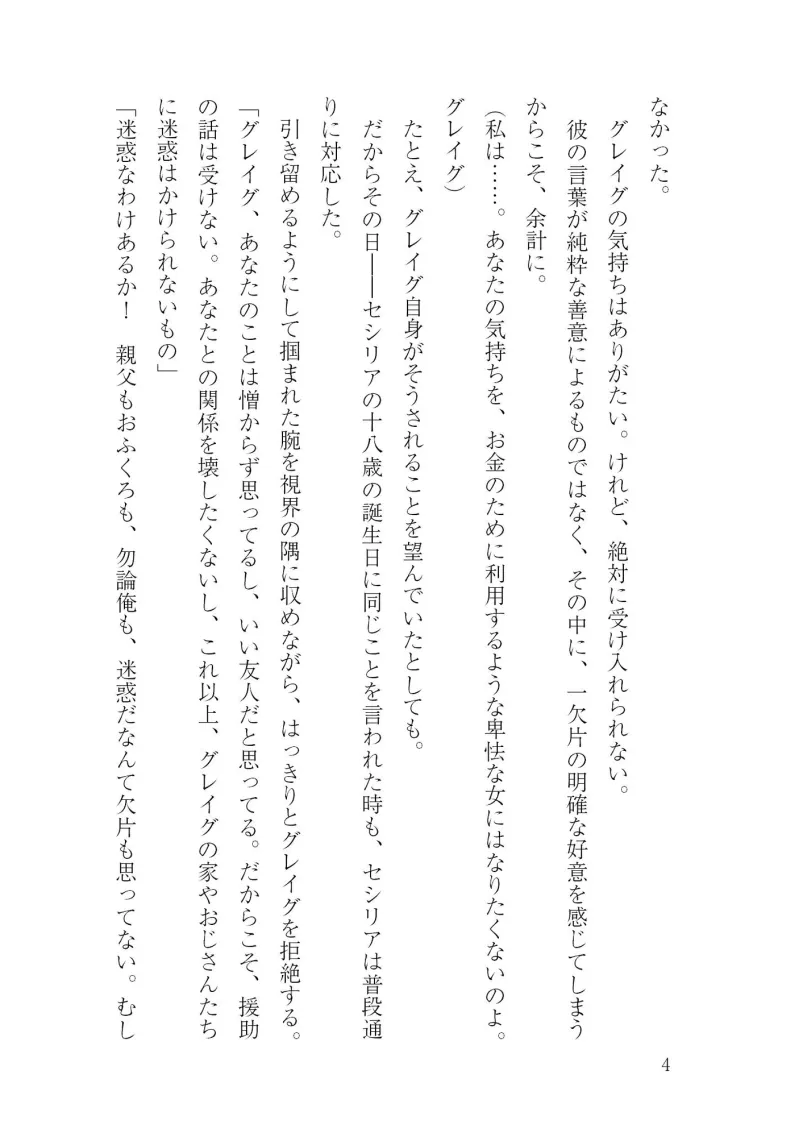 なかった。
グレイグの気持ちはありがたい。けれど、絶対に受け入れられない。
彼の言葉が純粋な善意によるものではなく、その中に、一欠片の明確な好意を感じてしまう
からこそ、余計に。
(私は……。あなたの気持ちを、お金のために利用するような卑怯な女にはなりたくないのよ。
グレイグ)
たとえ、グレイグ自身がそうされることを望んでいたとしても。
だからその日――セシリアの十八歳の誕生日に同じことを言われた時も、セシリアは普段通
りに対応した。
引き留めるようにして掴まれた腕を視界の隅に収めながら、はっきりとグレイグを拒絶する。
「グレイグ、あなたのことは憎からず思ってるし、いい友人だと思ってる。だからこそ、援助
の話は受けない。あなたとの関係を壊したくないし、これ以上、グレイグの家やおじさんたち
に迷惑はかけられないもの」
「迷惑なわけあるか！　親父もおふくろも、勿論俺も、迷惑だなんて欠片も思ってない。むし
4